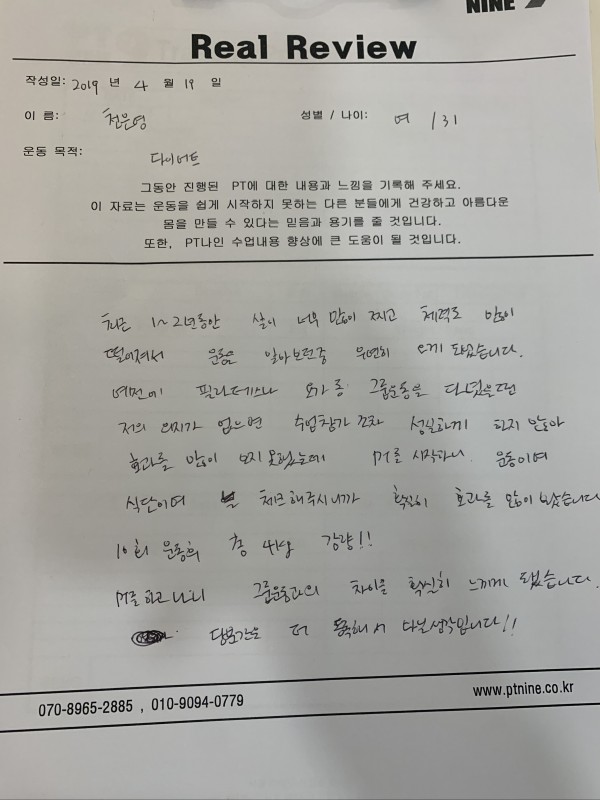 NINE
Real Review
작성일: 2019 년 4 월 19 일
이 름: 천은영 성별 / 나이: 여 / 31
운동 목적: 다이어트
그동안 진행된 PT에 대한 내용과 느낌을 기록해 주세요.
이 자료는 운동을 쉽게 시작하지 못하는 다른 분들에게 건강하고 아름다운
몸을 만들 수 있다는 믿음과 용기를 줄 것입니다.
또한, PT나인 수업내용 향상에 큰 도움이 될 것입니다.
최근 1~2년동안 살이 너무 많이 찌고 체력도 많이
떨어져서 운동을 알아보던중 우연히 오게 됐습니다.
예전에 필라테스나 요가 등 그룹운동을 다녔을땐
저의 의지가 없으면 수업참가 조차 성실하게 하지 않아
효과를 많이 보지 못했는데 PT를 시작하니 운동이며
식단이며 체크해주시니까 확실히 효과를 많이 봤습니다
10회 운동후 총 4kg 감량!!
PT를 하고 나니 그룹운동과의 차이를 확실히 느끼게 됐습니다.
당분간은 더 등록해서 다닐 생각입니다!!
070-8965-2885 , 010-9094-0779 www.ptnine.co.kr